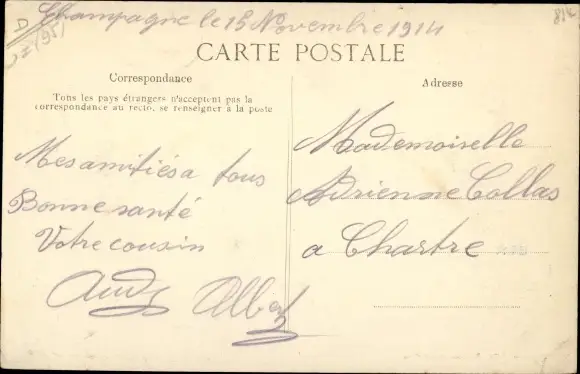 Champagne le 15 Novembre 1914
CARTE POSTALE
Correspondance
Tous les pays étrangers n'acceptent pas la
correspondance au recto, se renseigner à la poste
Mes amitiés a tous
Bonne santé
Votre cousin
Albert
Adresse
Mademoiselle
Adrienne Collas
a Chartre